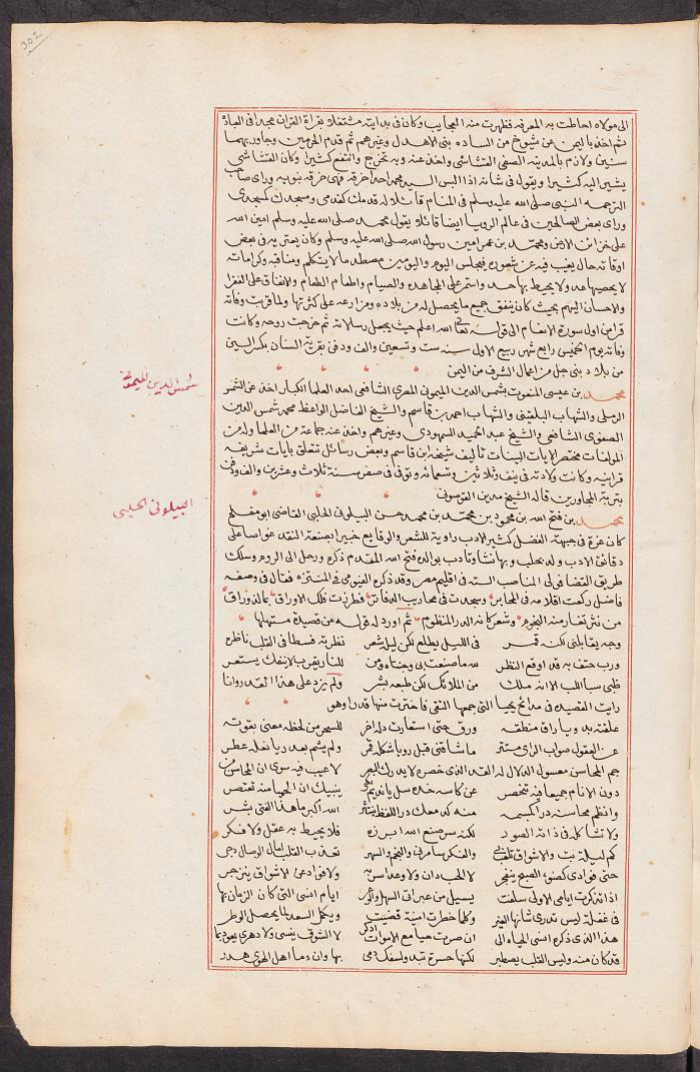 302
الى مولاه احاطت به المعرفه فظهرت منه العجايب وكان فى بدايته مشتغلا بقراة القران مجدا فى العباده
ثم اخذ باليمن عن شيوخ من الساده بنى الاهدل وغيرهم ثم قدم الحرمين وجاور بهما
سنين ولازم بالمدينه الصفى القشاشى واخذ عنه وبه تخرج وانتفع كثيرا وكان القشاشى
يشير اليه كثيرا ويقول فى شانه اذا البس السيد محمد احدا خرقه فهى خرقه نبويه وراى صاحب
الترجمه النبى صلى الله عليه وسلم فى المنام قائلا له قدمك كقدمى ومسجدك كمسجدى
وراى بعض الصالحين فى عالم الرويا ايضا قائلا يقول محمد صلى الله عليه وسلم امين الله
على خزائن الارض ومحمد بن عمر امين رسول الله صلى الله عليه وسلم وكان يعتريه فى بعض
اوقاته حال يغيب فيه عن شعوره فيجلس اليوم واليومين مصطلما لا يتكلم ومناقبه وكراماته
لا يحصيها عد ولا يحيط بها حد واستمر على المجاهده والصيام واطعام الطعام والانفاق على الفقرا
والاحسان اليهم بحيث كان ينفق جميع ما يحصل له من بلاده ومزارعه على كثرتها ولما قربت وفاته
قرا من اول سورة الانعام الى قوله تعالى الله اعلم حيث يجعل رسالاته ثم خرجت روحه وكانت
وفاته يوم الخميس رابع شهر ربيع الاول سنه ست وتسعين والف ودفن بقرية السنان بكسر السين
من بلاد بنى جل من اعمال الشرف من اليمن
شمس الدين الميمونى
محمد بن عيسى المنعوت بشمس الدين الميمونى المصرى الشافعى احد العلما الكبار اخذ عن الشمس
الرملى والشهاب البلقينى والشهاب احمد بن قاسم والشيخ الفاضل الواعظ محمد شمس الدين
الصفوى الشافعى والشيخ عبد الحميد السمهودى وغيرهم واخذ عنه جماعة من العلما وله من
المولفات مختصر الايات البينات تاليف شيخه ابن قاسم وبعض رسائل تتعلق بايات شريفه
قرانيه وكانت ولادته فى نيف وثلاثين وتسعمائه وتوفى فى صفر سنة ثلاث وعشرين والف ودفن
بتربة المجاورين قاله الشيخ مدين القوصونى
البيلونى الحلبى
محمد بن فتح الله بن محمود بن محمد بن محمد بن حسن البيلونى الحلبى القاضى ابو مفلح
كان غرة فى جبهة الفضل كثير الادب راوية للشعر والوقايع خبيرا بصنعة النقد غواصا على
دقائق الادب ولد بحلب وبها نشا وتادب بوالده فتح الله المقدم ذكره ورحل الى الروم وسلك
طريق القضا فولى المناصب السنيه فى اقليم مصر وقد ذكره الفيومى فى المنتزه فقال فى وصفه
فاضل ركعت اقلامه فى المحابر وسجدت فى محاريب الدفاتر فطرزت فلك الاوراق بمالذ وراق
من نثر تغار منه النجوم وشعر كانه الدر المنظوم ثم اورد له قوله من قصيدة مستهلها
وجه يقابلنى لكنه قمر فى الليل يطلع لكن ليله شعر نظرته فسطا فى القلب ناظره
ورب حتف به قد اوقع النظر لله ما صنعت بى وجنتاه ومن للنار يقرب لا ينفك يستعر
ظبى سبا اللب الا انه ملك من الملائك لكن طبعه بشر ولم يزد على هذا القدر وانا
رايت القصيده فى مدائح يحيا التى جمعها التقى فاخترت منها قدرا وهو
علقته بدويا راق منطقه ورق حتى استعارت دله اخر للسحر من لحظه معنى بقوته
عن العقول صواب الراى مستتر ما شاقنى قبل رويا شكله قمر ولم يشم بعد رياه لعله عطر
جم المحاسن معسول الدلال له القد الذى خصره لا يدرك البصر لا عيب فيه سوى ان المحاسن من
دون الانام جميعا فيه تنحصر عن كاسه خده سل ياند ينبيك ان الحميا منه تعتصر
وانظم محاسنه در كمبسمه منه كدمعك در اللفظ ينتثر الله اكبر ما هذا الفتى بشر
ولا تشاكله فى ذاته الصور لكنه سر صنع الله ابرزه فلا يحيط به عقل ولا فكر
كم ليلة بت والاشواق تلعب بى والفكر سامرنى والنجم والسهر تعذب القلب امال الوصال دجى
حتى فوادى كضوء الصبح ينفجر لا الحب دان ولا وعد اسر به ولا فوادى عن الاشواق ينزجر
اذا تذكرت ايامى الاولى سلفت يسيل من عبراتى السهل والوعر ايام انسى التى كان الزمان بها
فى غفلة ليس تدرى شانها الغير وكلما خطرت امنية قضيت ويكمل السعد لما يحصل الوطر
هذا الذى ذكره انسى الحياة الى ان صرت حيا مع الاموات اذكر لا الشوق ينسى ولا دهرى يعود بما
قد كان منه وليس القلب يصطبر لكنها حسرة تبدو ولسفك دمى بها وان دما اهل الهوى هدر